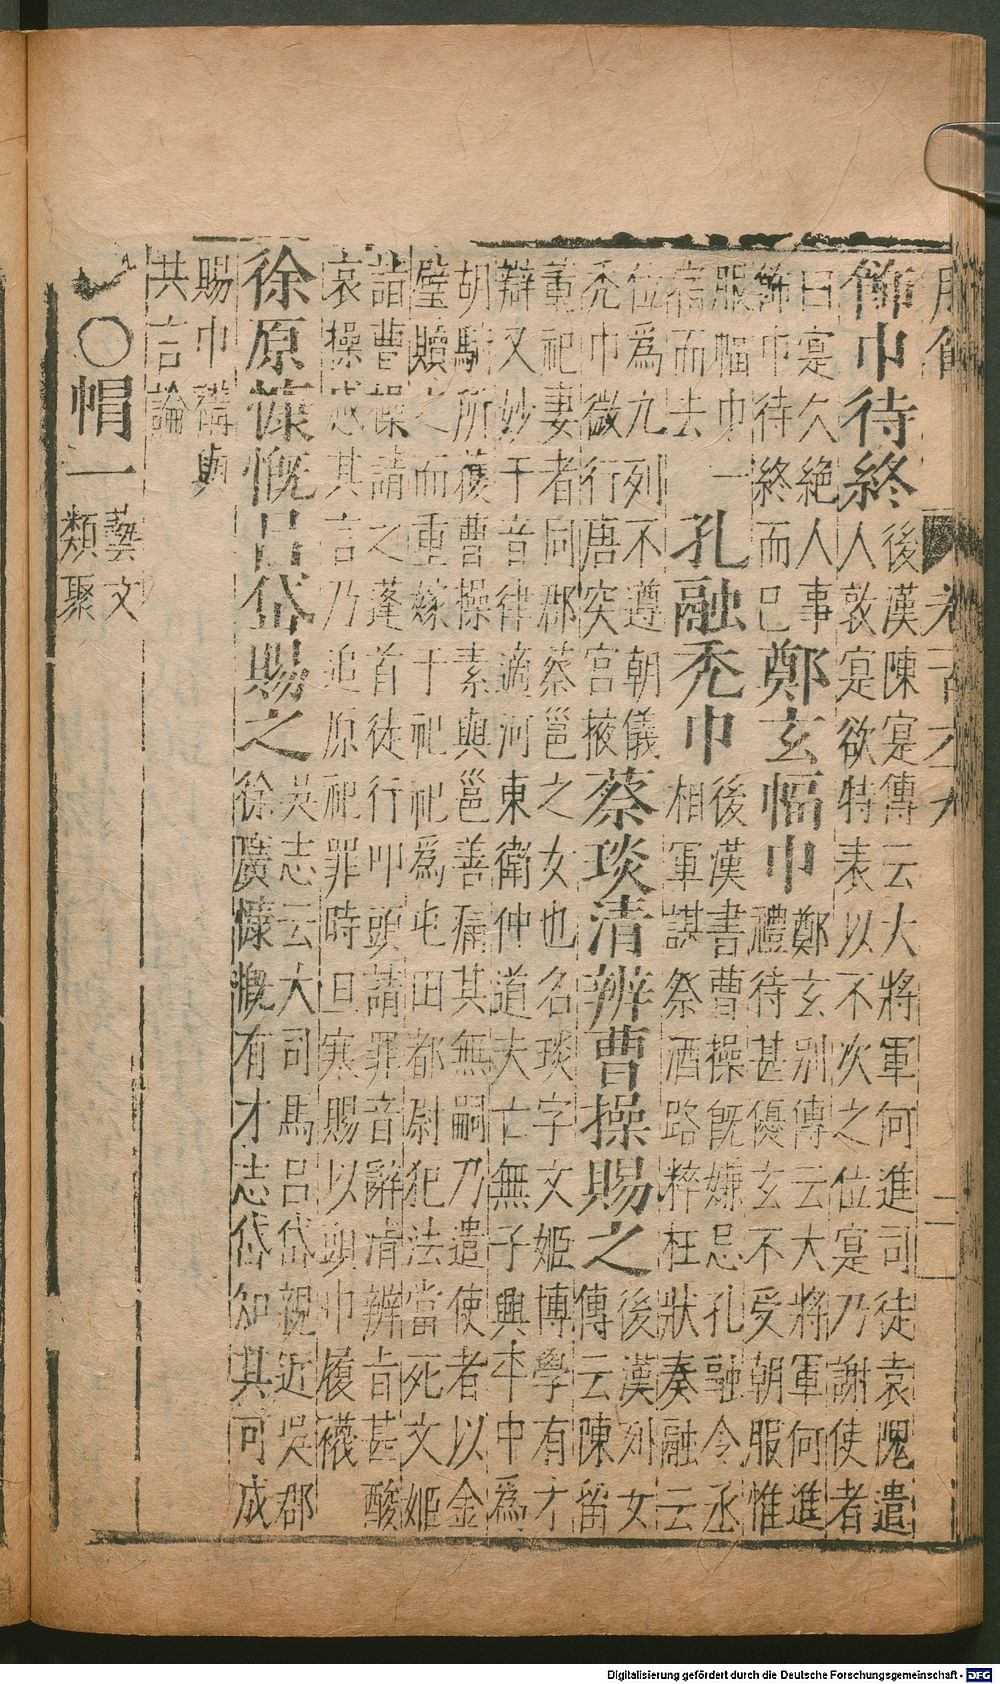 飾巾待終後漢陳寔傳云大將軍何進司徒袁隗遣
人敦寔欲特表以不次之位寔乃謝使者
曰寔久絕人事
飾巾待終而已鄭玄幅巾鄭玄別傳云大將軍何進
禮待甚優玄不受朝服惟
服幅巾一
宿而去孔融禿巾後漢書曹操旣嫌忌孔融令丞
相軍謀祭酒路粹枉狀奏融云
位爲九列不遵朝儀
禿巾微行唐突宮掖蔡琰清辨曹操賜之後漢列女
傳云陳留
董祀妻者同郡蔡邕之女也名琰字文姬博學有才
辯又妙于音律適河東衛仲道夫亡無子興平中爲
胡騎所獲曹操素與邕善痛其無嗣乃遣使者以金
璧贖之而重嫁于祀祀爲屯田都尉犯法當死文姬
詣曹操請之蓬首徒行叩頭請罪音辭清辨旨甚酸
哀操感其言乃追原祀罪時且寒賜以頭巾履襪
徐原慷慨呂岱賜之吳志云大司馬呂岱親近吳郡
徐廣慷慨有才志岱知其可成
賜巾褠與
共言論
〇帽一藝文
類聚
Digitalisierung gefördert durch die Deutsche Forschungsgemeinschaft - DFG